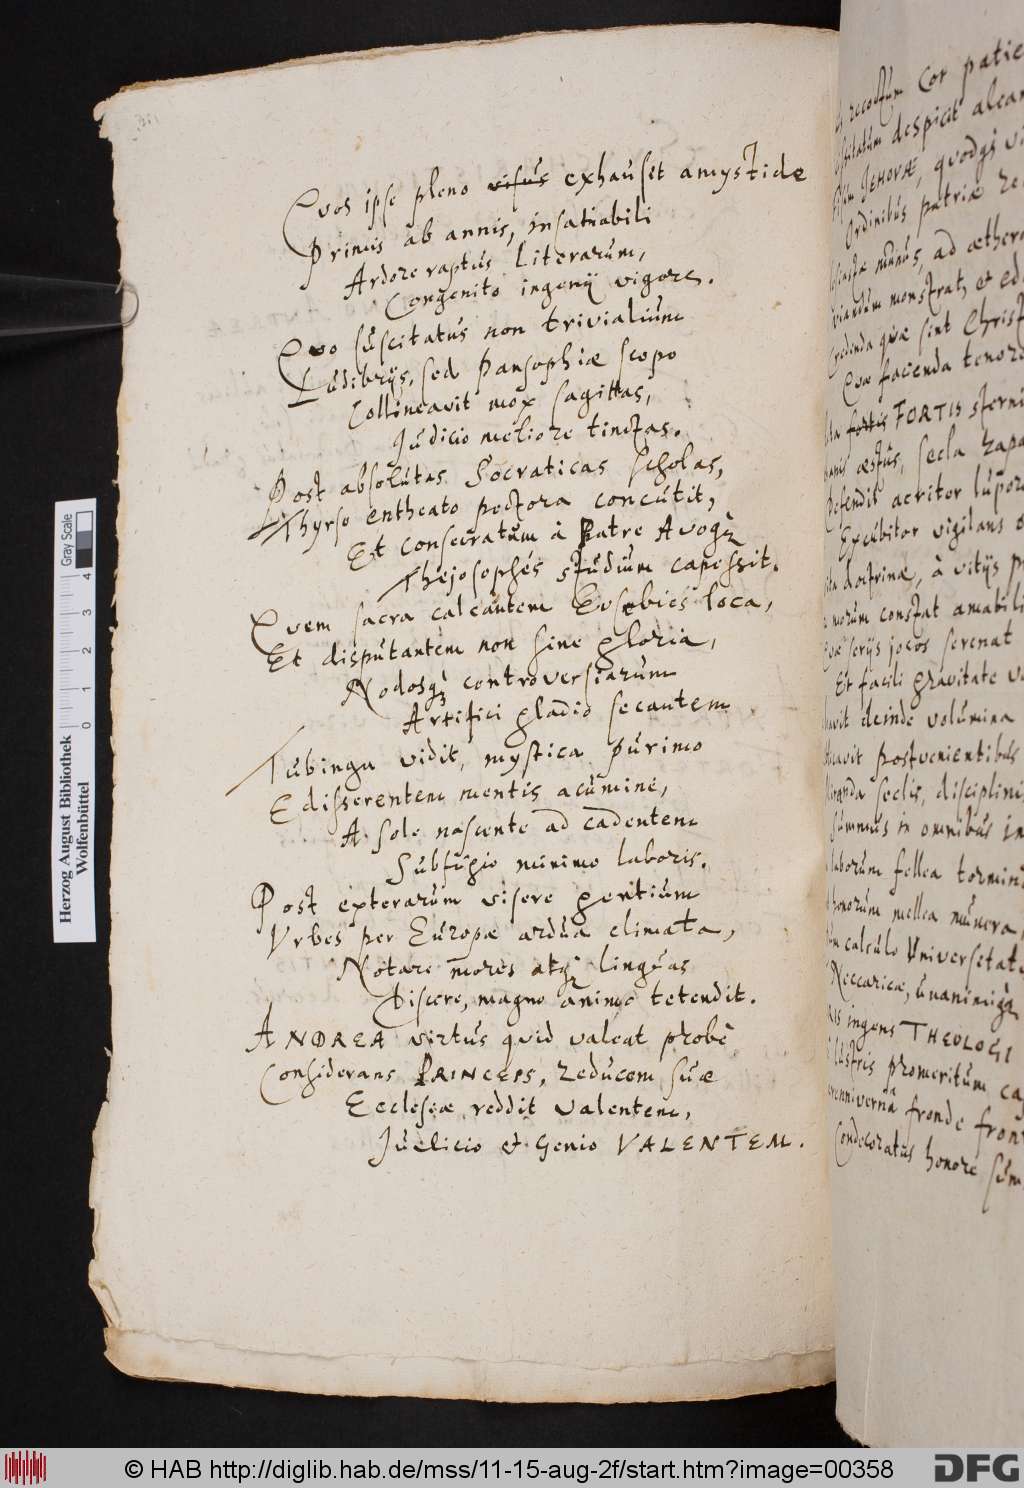 Quos ipse pleno visus exhauset amystide
Primis ab annis, insatiabili
Ardore raptus literarum,
Congenito ingenij vigore.
Quo suscitatus non trivialium
Ludibrijs, sed Pansophiæ scopo
Collineavit mox sagittas,
Judicio meliore tinctas.
Post absolutas Socraticas scholas,
Thyrso entheato pectora concutit,
Et consecratum à Patre Avoq́;
Thejosophes studium capessit.
Quem sacra calcantem Eusebies loca,
Et disputantem non sine gloria,
Nodosq́; controversiarum
Artifici gladio secantem
Tubinga vidit, mystica purimo
Edisserentem mentis acumine,
A sole nascente ad cadentem
Subfugio minimo laboris.
Post exterarum visere gentium
Vrbes per Europæ ardua climata,
Notare mores atq; linguas
Discere, magno animo tetendit.
ANDREA virtus quid valeat probè
Considerans PRINCEPS, reducem suæ
Ecclesiæ reddit valentem,
Judicio & Genio VALENTEM.
recoctum Cor
despicit
JEHOVÆ, quodq́;
Ordinibus patriæ
munus, ad
monstrat, et
Credenda quæ sint
Quæ facienda
fortis FORTIS
æstus, secla
Defendit acriter
Excubitor vigilans
doctrinæ, à vitijs
morum constat
serijs jocos serenat
Et facili gravitate
deinde volumina
postvenientibus
seclis,
summus in omnibus
laborum fellea
honorum mellea munera
calculo
Neccaricæ, unanimiq́;
ingens THEOLOGI
promeritum
fronde
Condecoratus honore
Herzog August Bibliothek
Wolfenbüttel
Gray Scale
0 1 2 3 4
© HAB http://diglib.hab.de/mss/11-15-aug-2f/start.htm?image=00358
DFG